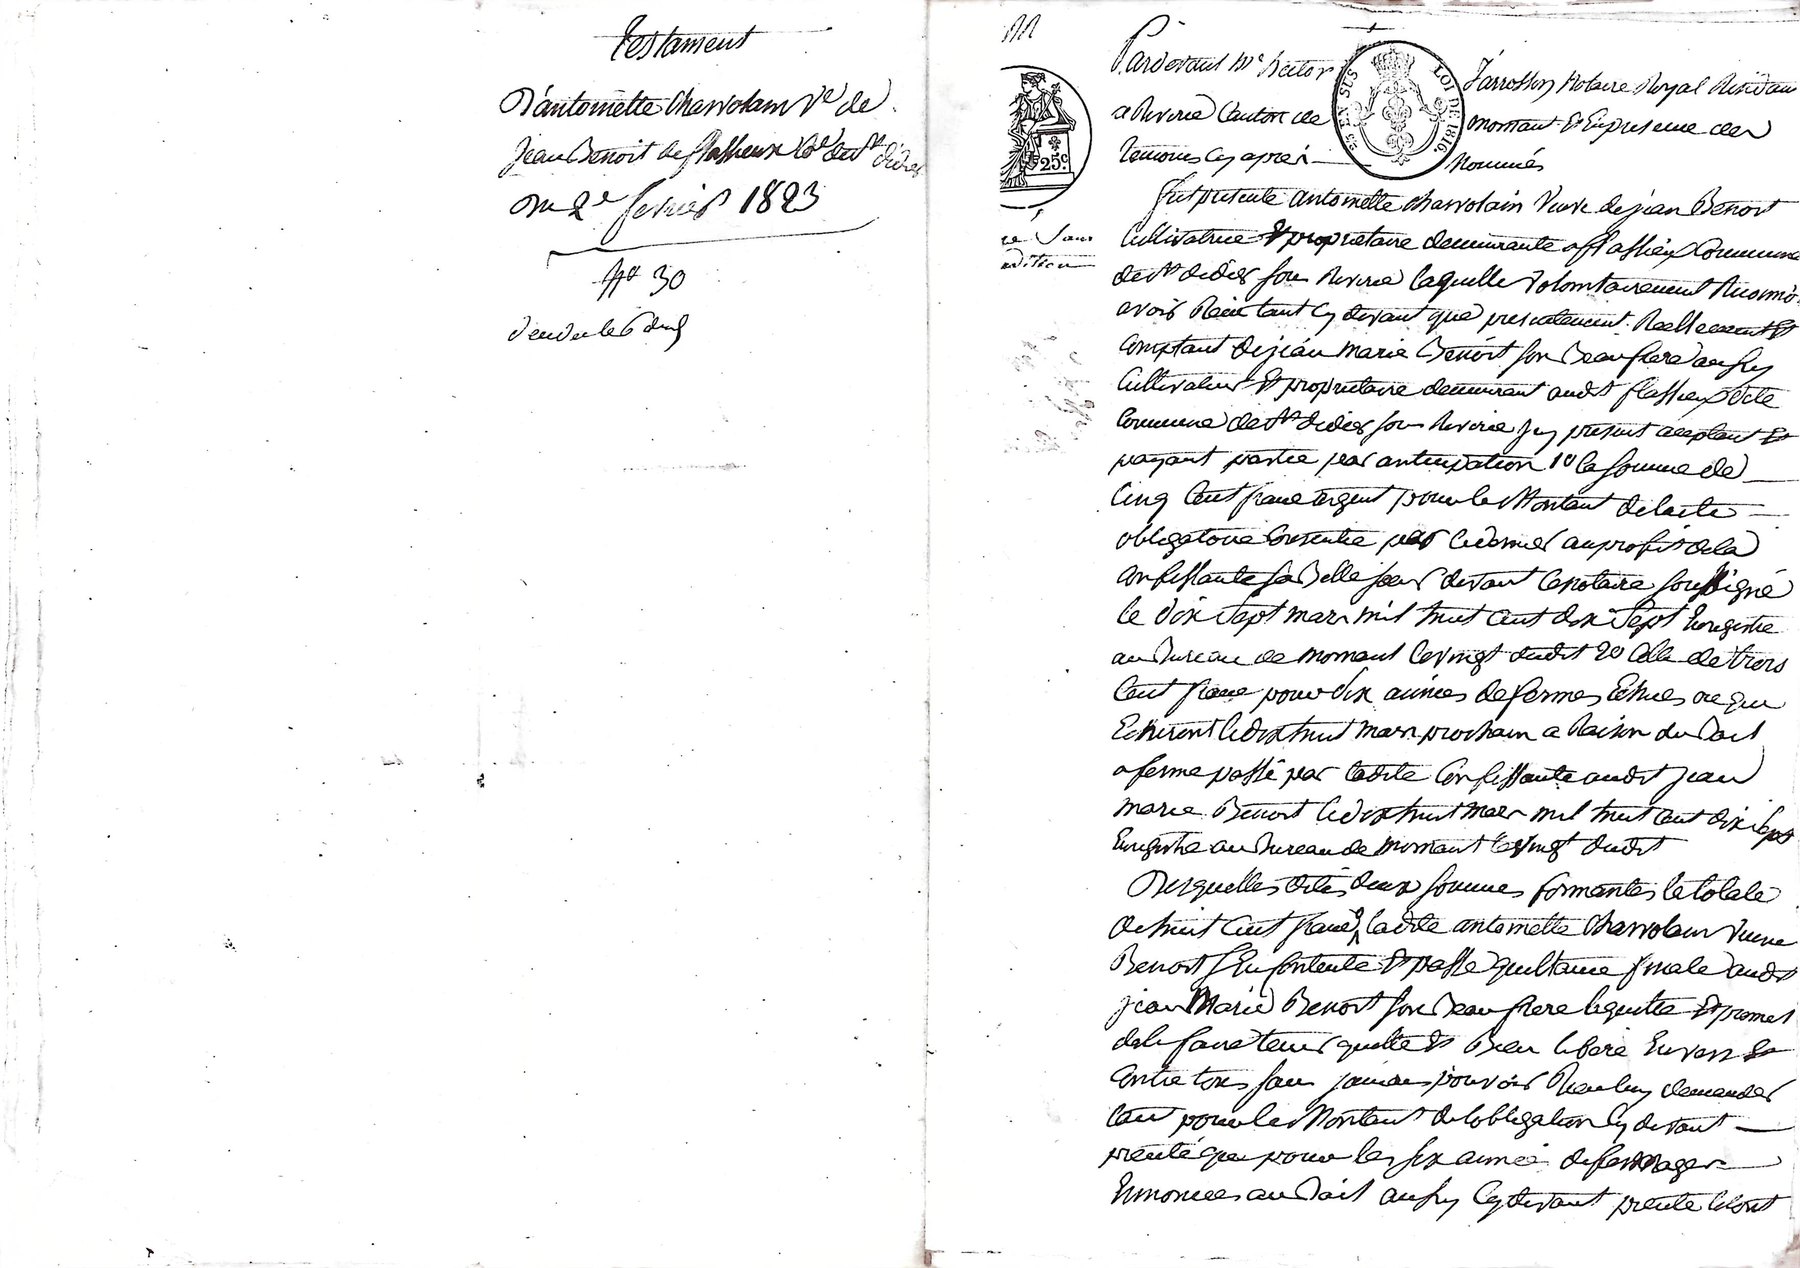 Testament
D'antoinette Charvolain Ve de
Jean Benoit de flassieux Cne de St didier
Du 2e fevrier 1823
N° 30
M
Pardevant Me hector Jarrosson Notaire Royal Residant
a Riverie Canton de mornant Et En presence des
temoins Cy après Nommés
25c
EN SUS LOI DE 1816.
fut presente antoinette Charvolain Veuve de jean Benoit
Cultivatrice Et proprietaire demeurante a flassieux Commune
de St didier sous Riverie laquelle volontairement
avoir Reçu tant Cy devant que presentement Reellement Et
Comptant de jean marie Benoit son Beaufrere aussy
Cultivateur Et proprietaire demeurant audit flassieux dite
Commune de St didier sous Riverie Jcy present aceptant Et
payant partie par anticipation 1° la somme de
Cinq Cent franc argent pour le Montant de lacte
obligatoire Consentie par Ce dernier au profit de la
Confessante sa Belle soeur devant le notaire soussigné
le dix Sept mars mil huit Cent dix Sept Enregistré
au Bureau de mornant le vingt dudit 2° Celle de trois
Cent franc pour six années de fermes Echues ou qui
Echeront le dix huit mars prochain a Raison du Bail
a ferme passé par ladite Confessante audit jean
marie Benoit le dix huit mars mil huit Cent dix Sept
Enregistré au Bureau de mornant le vingt dudit
Desquelles dites deux sommes formantes le totale
de huit Cent franc ladite antoinette Charvolain Veuve
Benoit s'En Contente Et passe quittance finale audit
jean Marie Benoit son Beaufrere le quitte Et promet
de le faire tenir quitte Et Bien liberé Envers Et
Contre tous sans jamais pouvoir Rien luy demander
tant pour le Montant de lobligation Cy devant
que pour les six année de fermages
Ennoncees au Bail aussy Cy devant